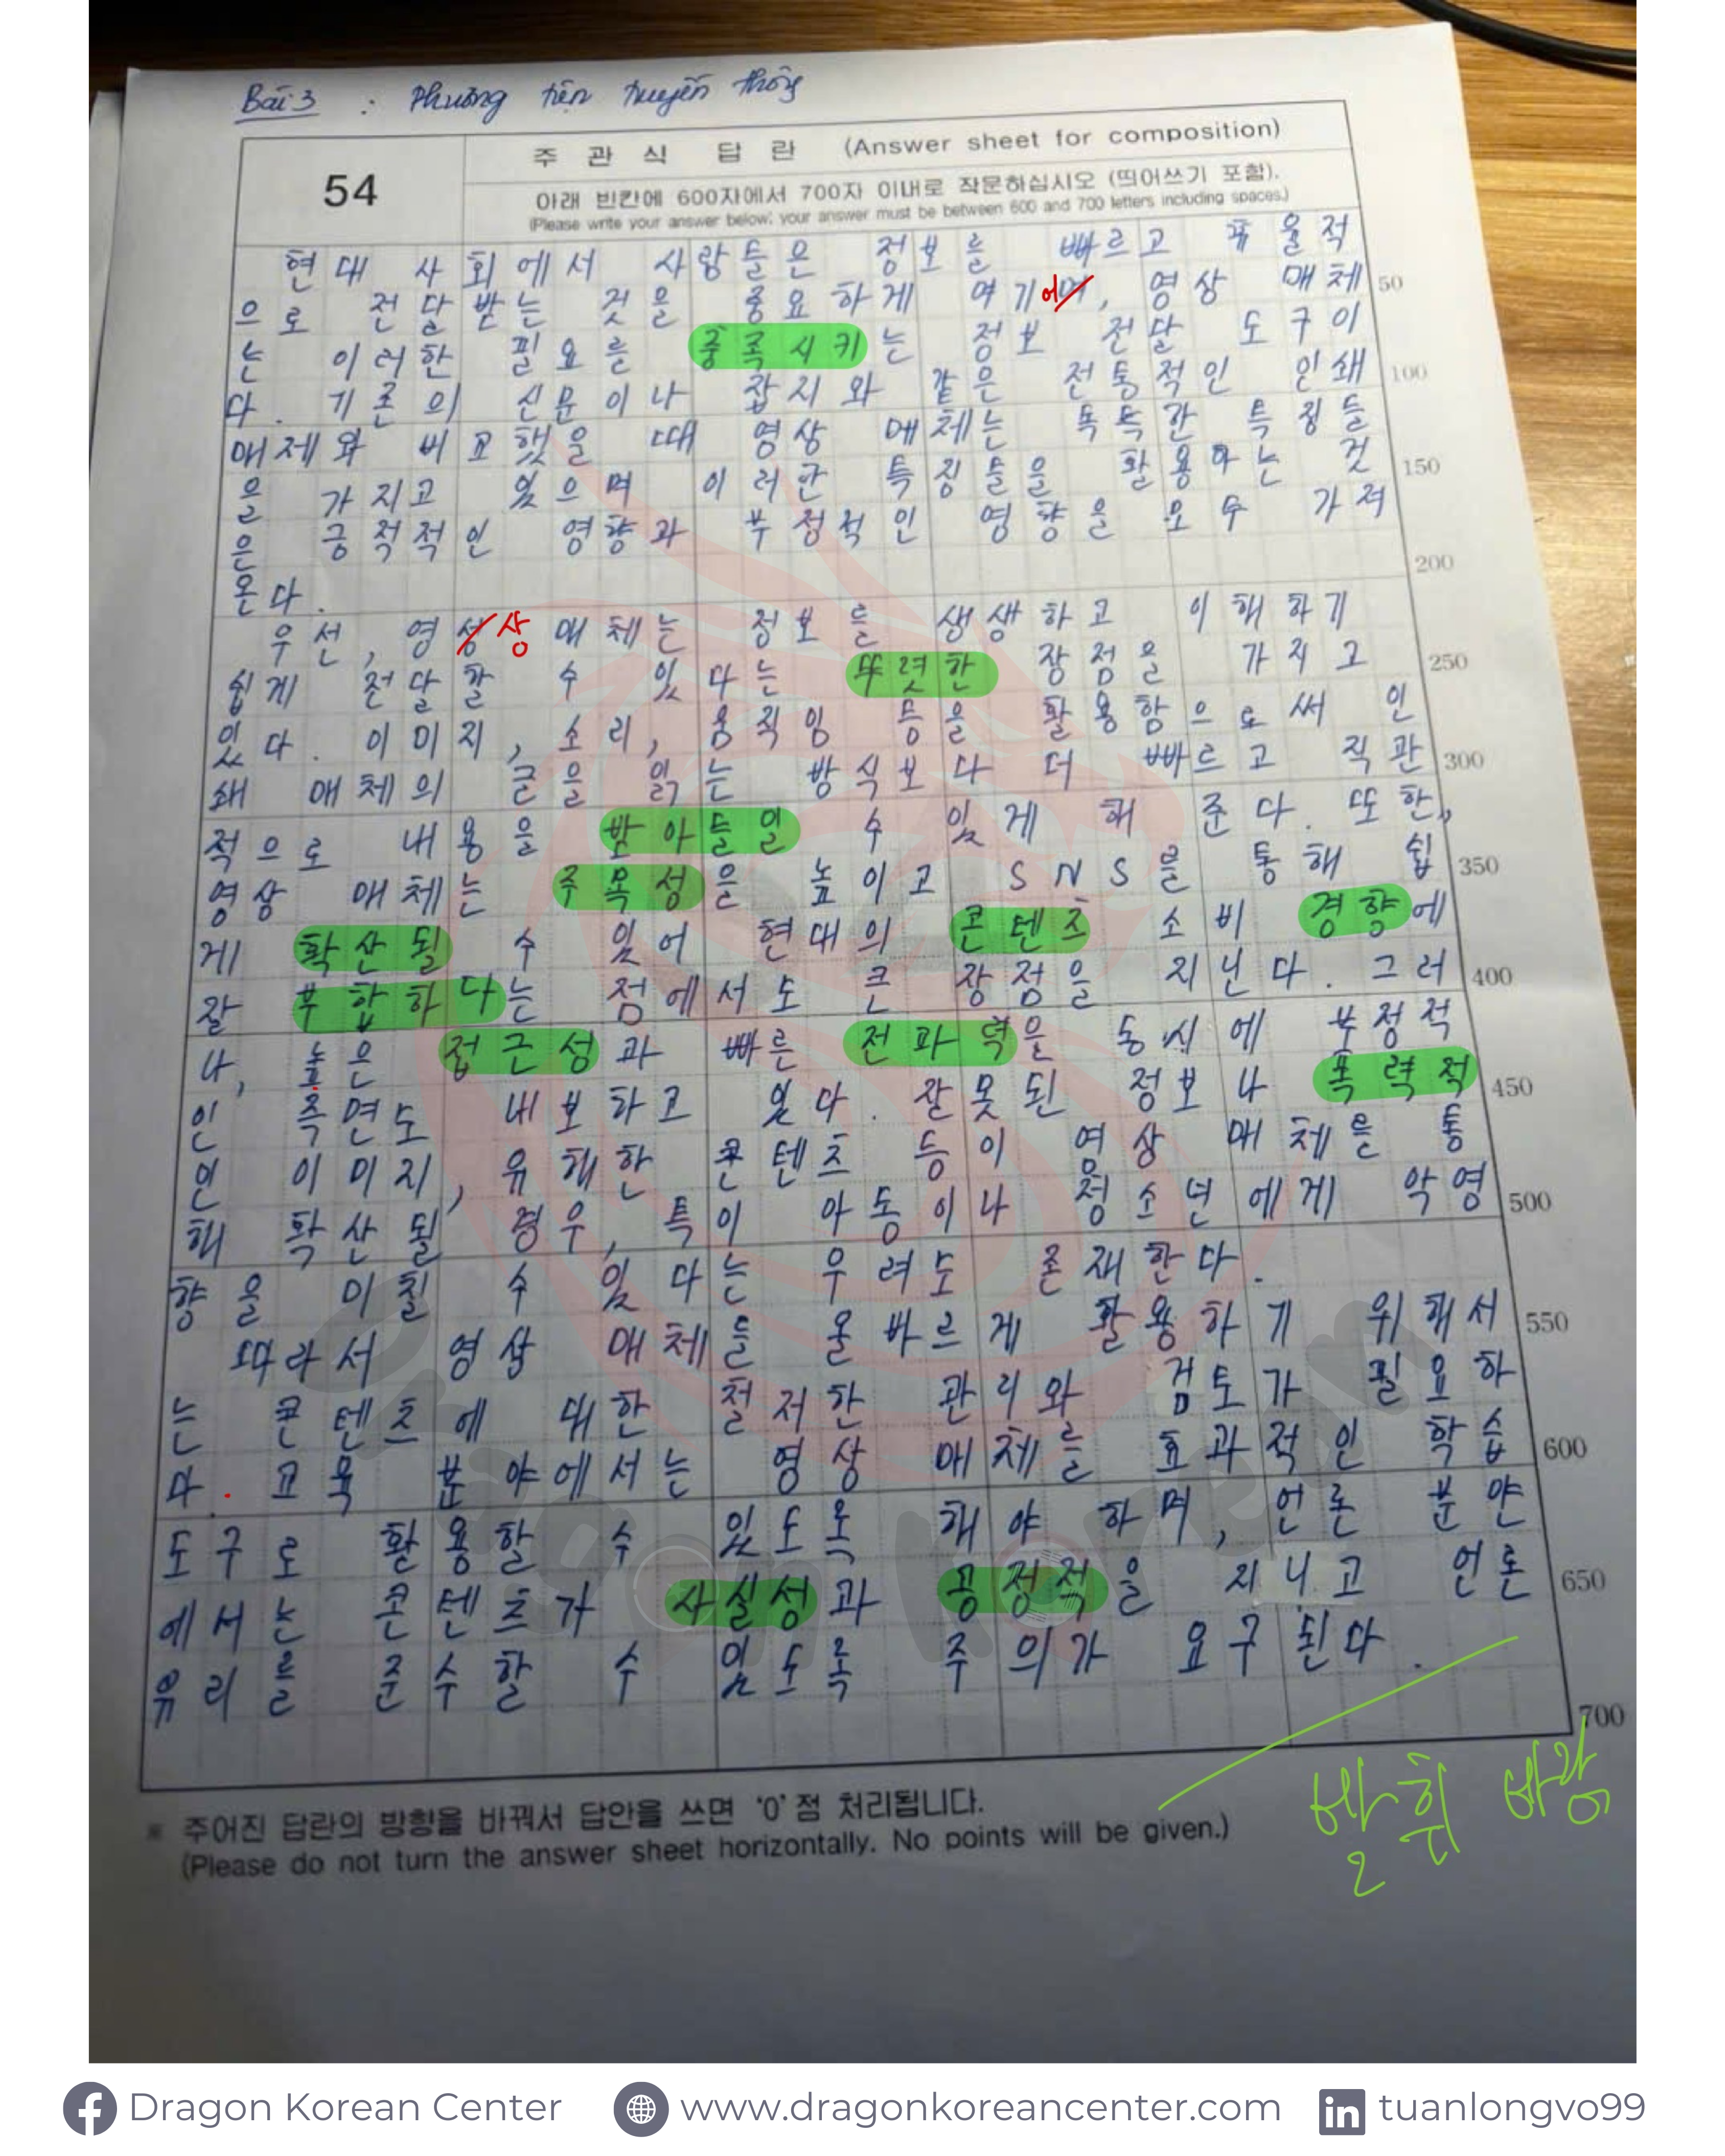 Bài 3 : Phương tiện truyền thông
54
주 관 식 답 란 (Answer sheet for composition)
아래 빈칸에 600자에서 700자 이내로 작문하십시오 (띄어쓰기 포함).
(Please write your answer below; your answer must be between 600 and 700 letters including spaces.)
현대 사회에서 사람들은 정보를 빠르고 효율적
으로 전달받는 것을 중요하게 여기며어, 영상 매체 50
는 이러한 필요를 충족시키는 정보 전달 도구이
다. 기존의 신문이나 잡지와 같은 전통적인 인쇄 100
매체와 비교했을 때 영상 매체는 독특한 특징들
을 가지고 있으며 이러한 특징들을 활용하는 것 150
은 긍적적인 영향과 부정적인 영향을 모두 가져
온다. 200
우선, 영성상 매체는 정보를 생생하고 이해하기
쉽게 전달할 수 있다는 뚜렷한 장점을 가지고 250
있다. 이미지, 소리, 움직임 등을 활용함으로써 인
쇄 매체의 글을 읽는 방식보다 더 빠르고 직관 300
적으로 내용을 받아들일 수 있게 해 준다. 또한,
영상 매체는 주목성을 높이고 SNS를 통해 쉽 350
게 확산될 수 있어 현대의 콘텐츠 소비 경향에
잘 부합하다는 점에서도 큰 장점을 지닌다. 그러 400
나, 높은 접근성과 빠른 전파력은 동시에 부정적
인 측면도 내포하고 있다. 잘못된 정보나 폭력적 450
인 이미지, 유해한 콘텐츠 등이 영상 매체를 통
해 확산될 경우, 특히 아동이나 청소년에게 악영 500
향을 미칠 수 있다는 우려도 존재한다.
따라서 영상 매체를 올바르게 활용하기 위해서 550
는 콘텐츠에 대한 철저한 관리와 검토가 필요하
다. 교육 분야에서는 영상 매체를 효과적인 학습 600
도구로 활용할 수 있도록 해야 하며, 언론 분야
에서는 콘텐츠가 사실성과 공정적을 지니고 언론 650
윤리를 준수할 수 있도록 주의가 요구된다.
700
발휘 바람
※ 주어진 답란의 방향을 바꿔서 답안을 쓰면 '0'점 처리됩니다.
(Please do not turn the answer sheet horizontally. No points will be given.)
Dragon Korean
Dragon Korean Center www.dragonkoreancenter.com tuanlongvo99